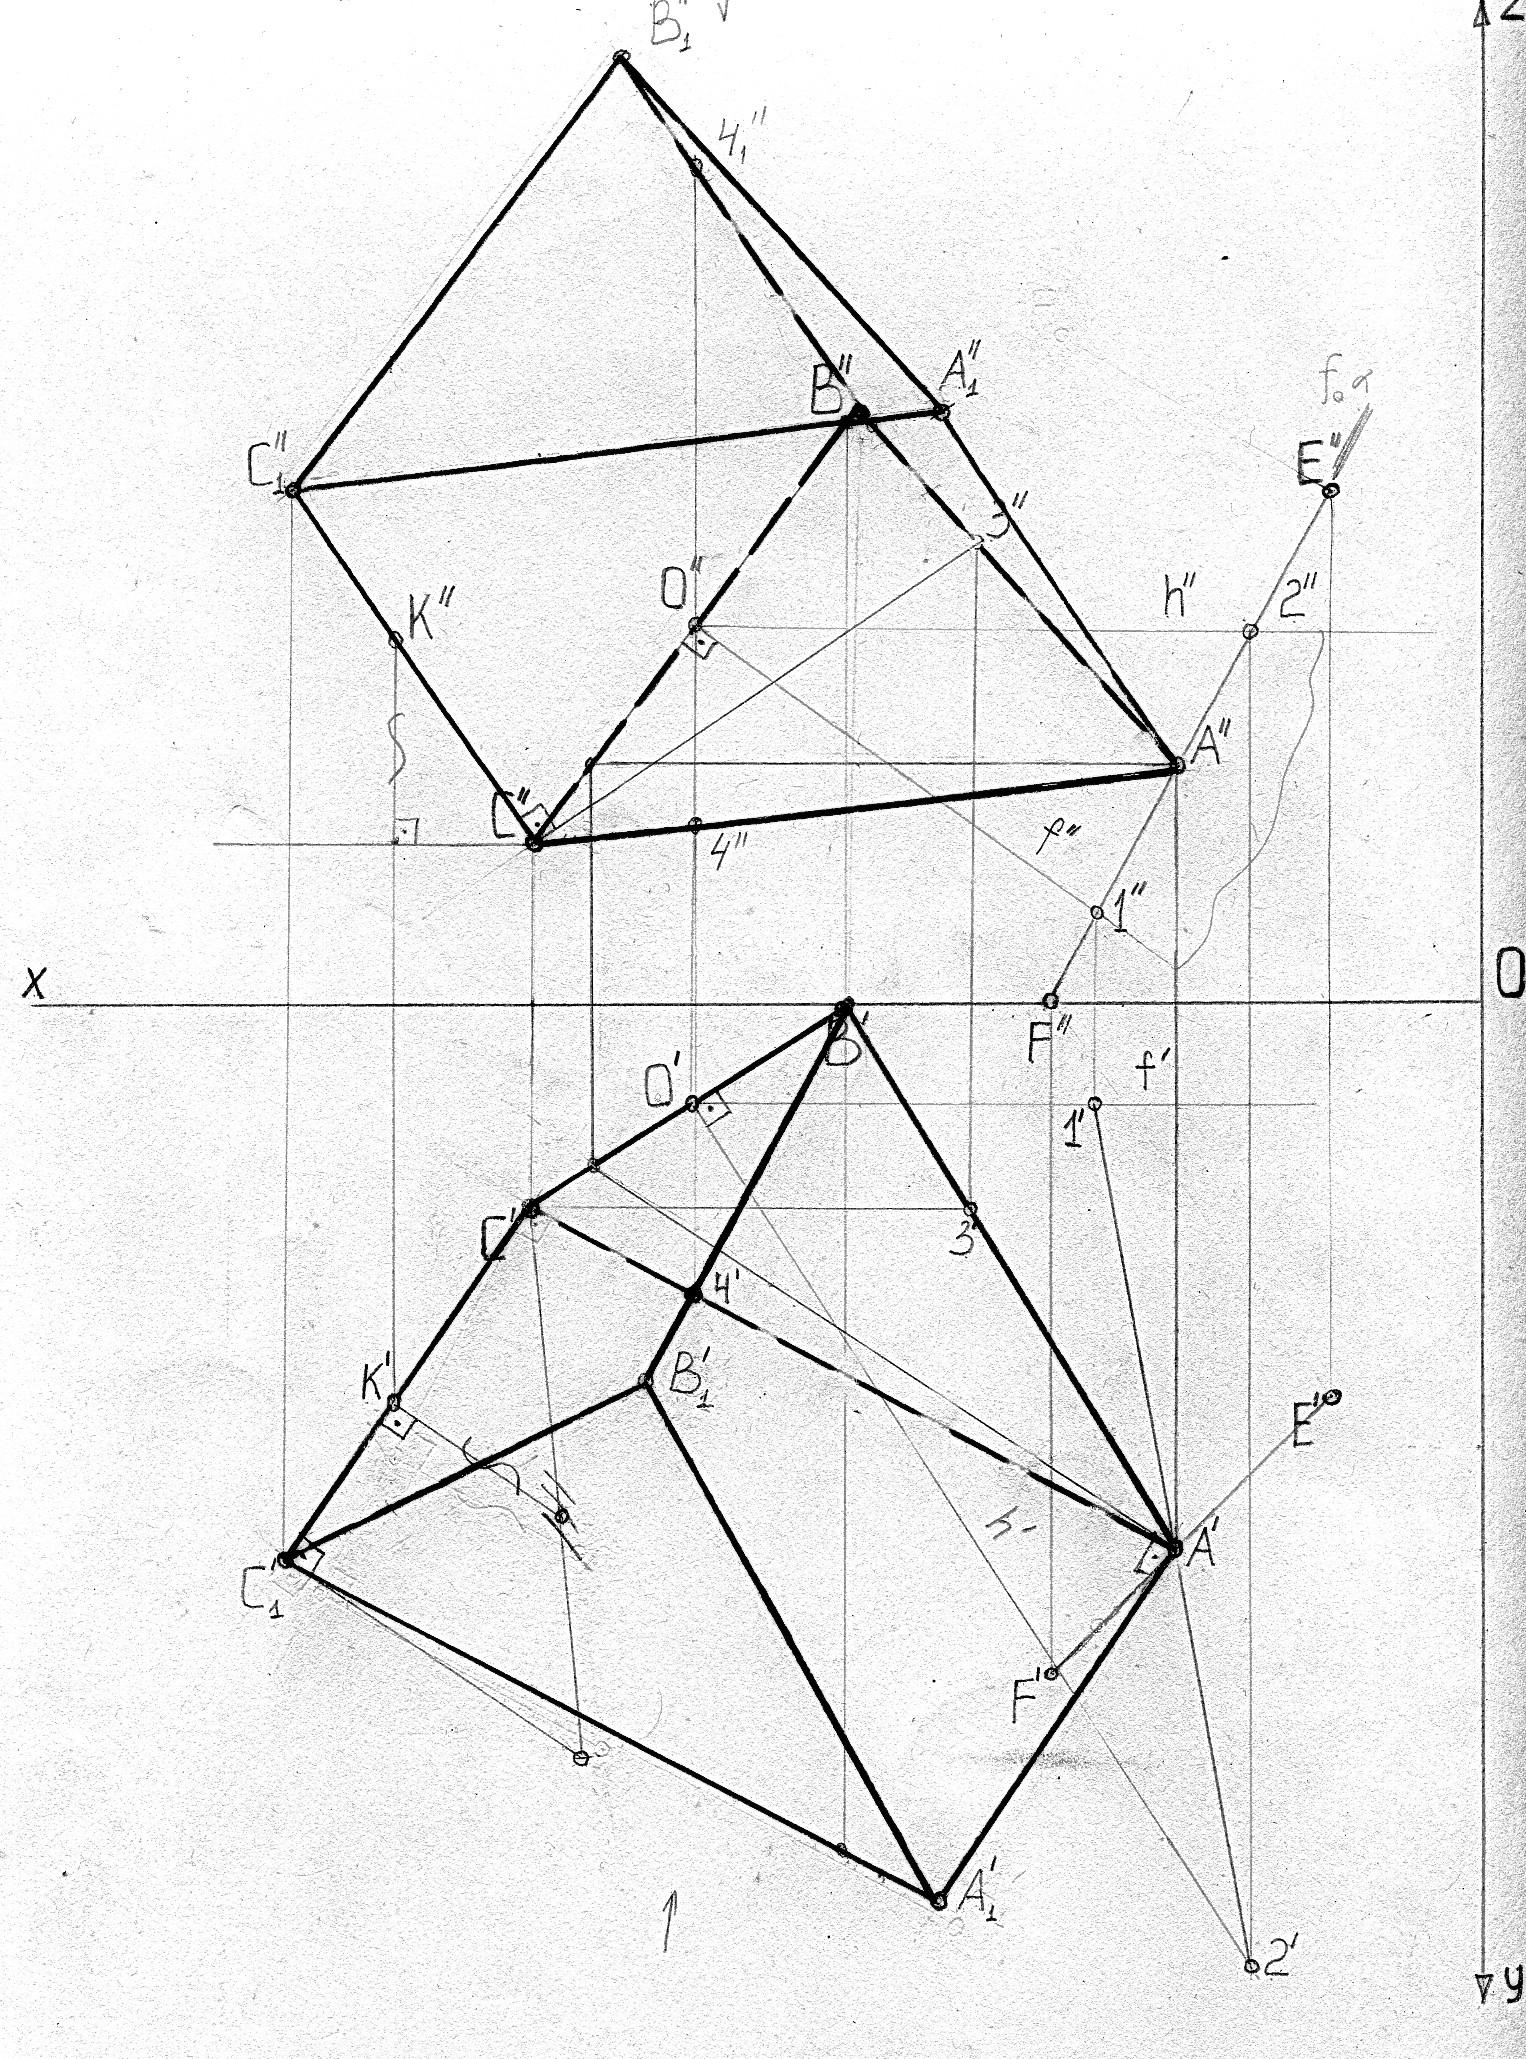 Z
B₁"
4₁"
B"
A₁"
f₀α
C₁"
E"
3"
O"
h"
2"
K"
A"
C"
4"
f"
1"
X
O
F"
B'
O'
f'
1'
C'
3'
4'
K'
B₁'
E'
A'
C₁'
F'
A₁'
2'
y